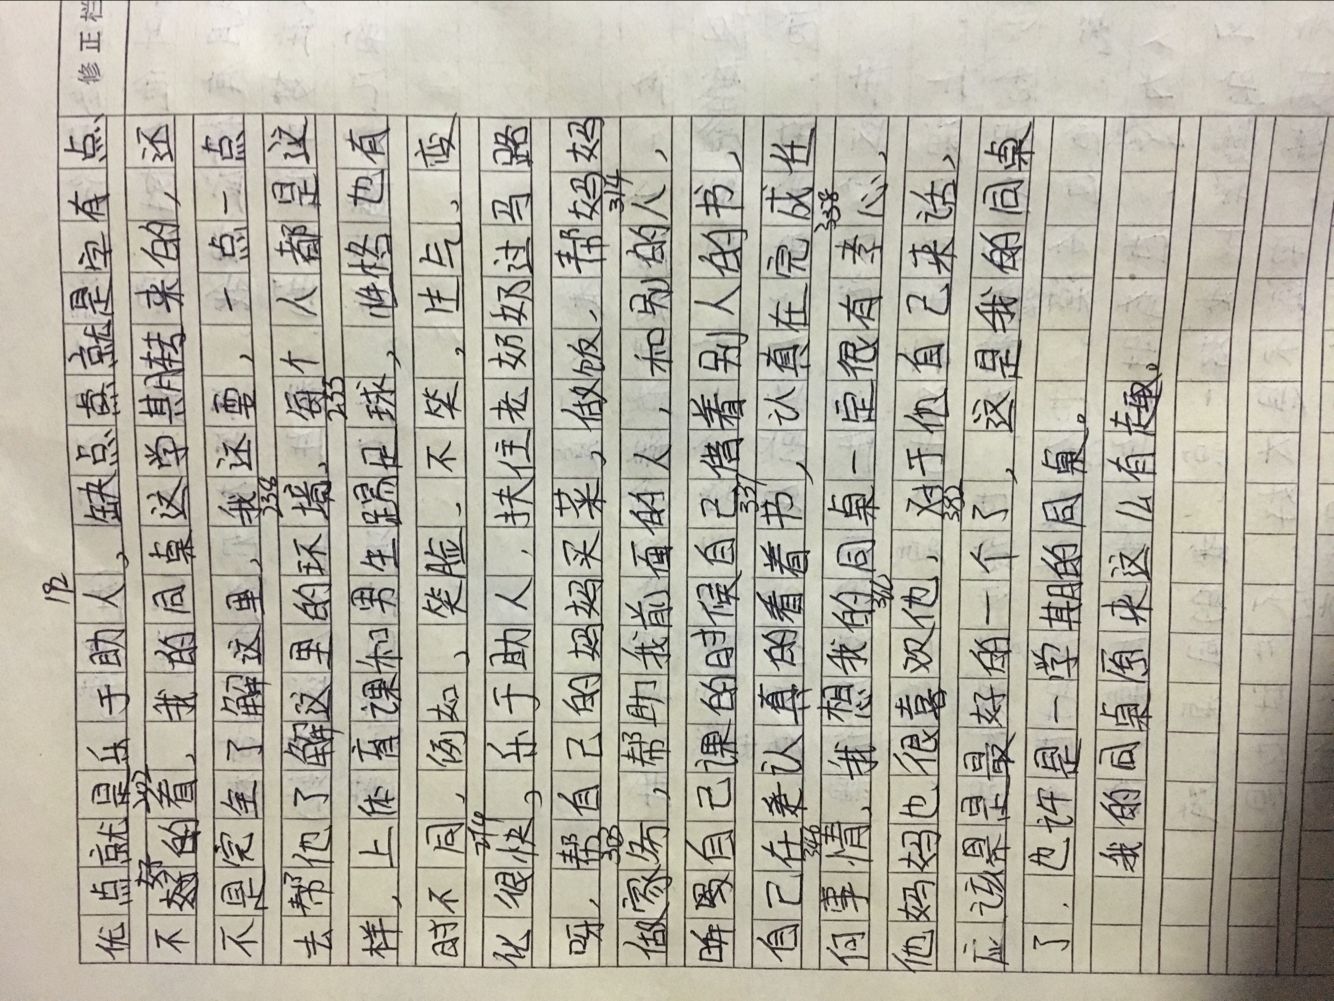 修正栏
192
优点就是乐于助人、缺点点就是字有点
不好的看，我的同桌这学其月转来的，还
不是完全了解这里，我还要，一点一点
238
去帮他了解这里的环境、每个人都是这
255
样，上体育课和男生踢足球，性格也有
时不同，例如、笑脸、不笑，生气、变
276
化很快、乐于助人，扶住老奶奶过马路
呀，帮自己的妈妈买菜，做饭，帮妈妈
303
314
做家务，帮助我前面的人，和别的人，
昕写自己课的时候自己借着别人的书，
337
自己在乘认真的看着书，认真在完成任
346
358
何事情，我想我的同桌一定很有孝心，
他妈妈也很喜双他，对于他自己来话，
382
应该是最好的一个了，这是我的同桌
了，也许是一学其月的同桌。
我的同桌原来这么有趣。